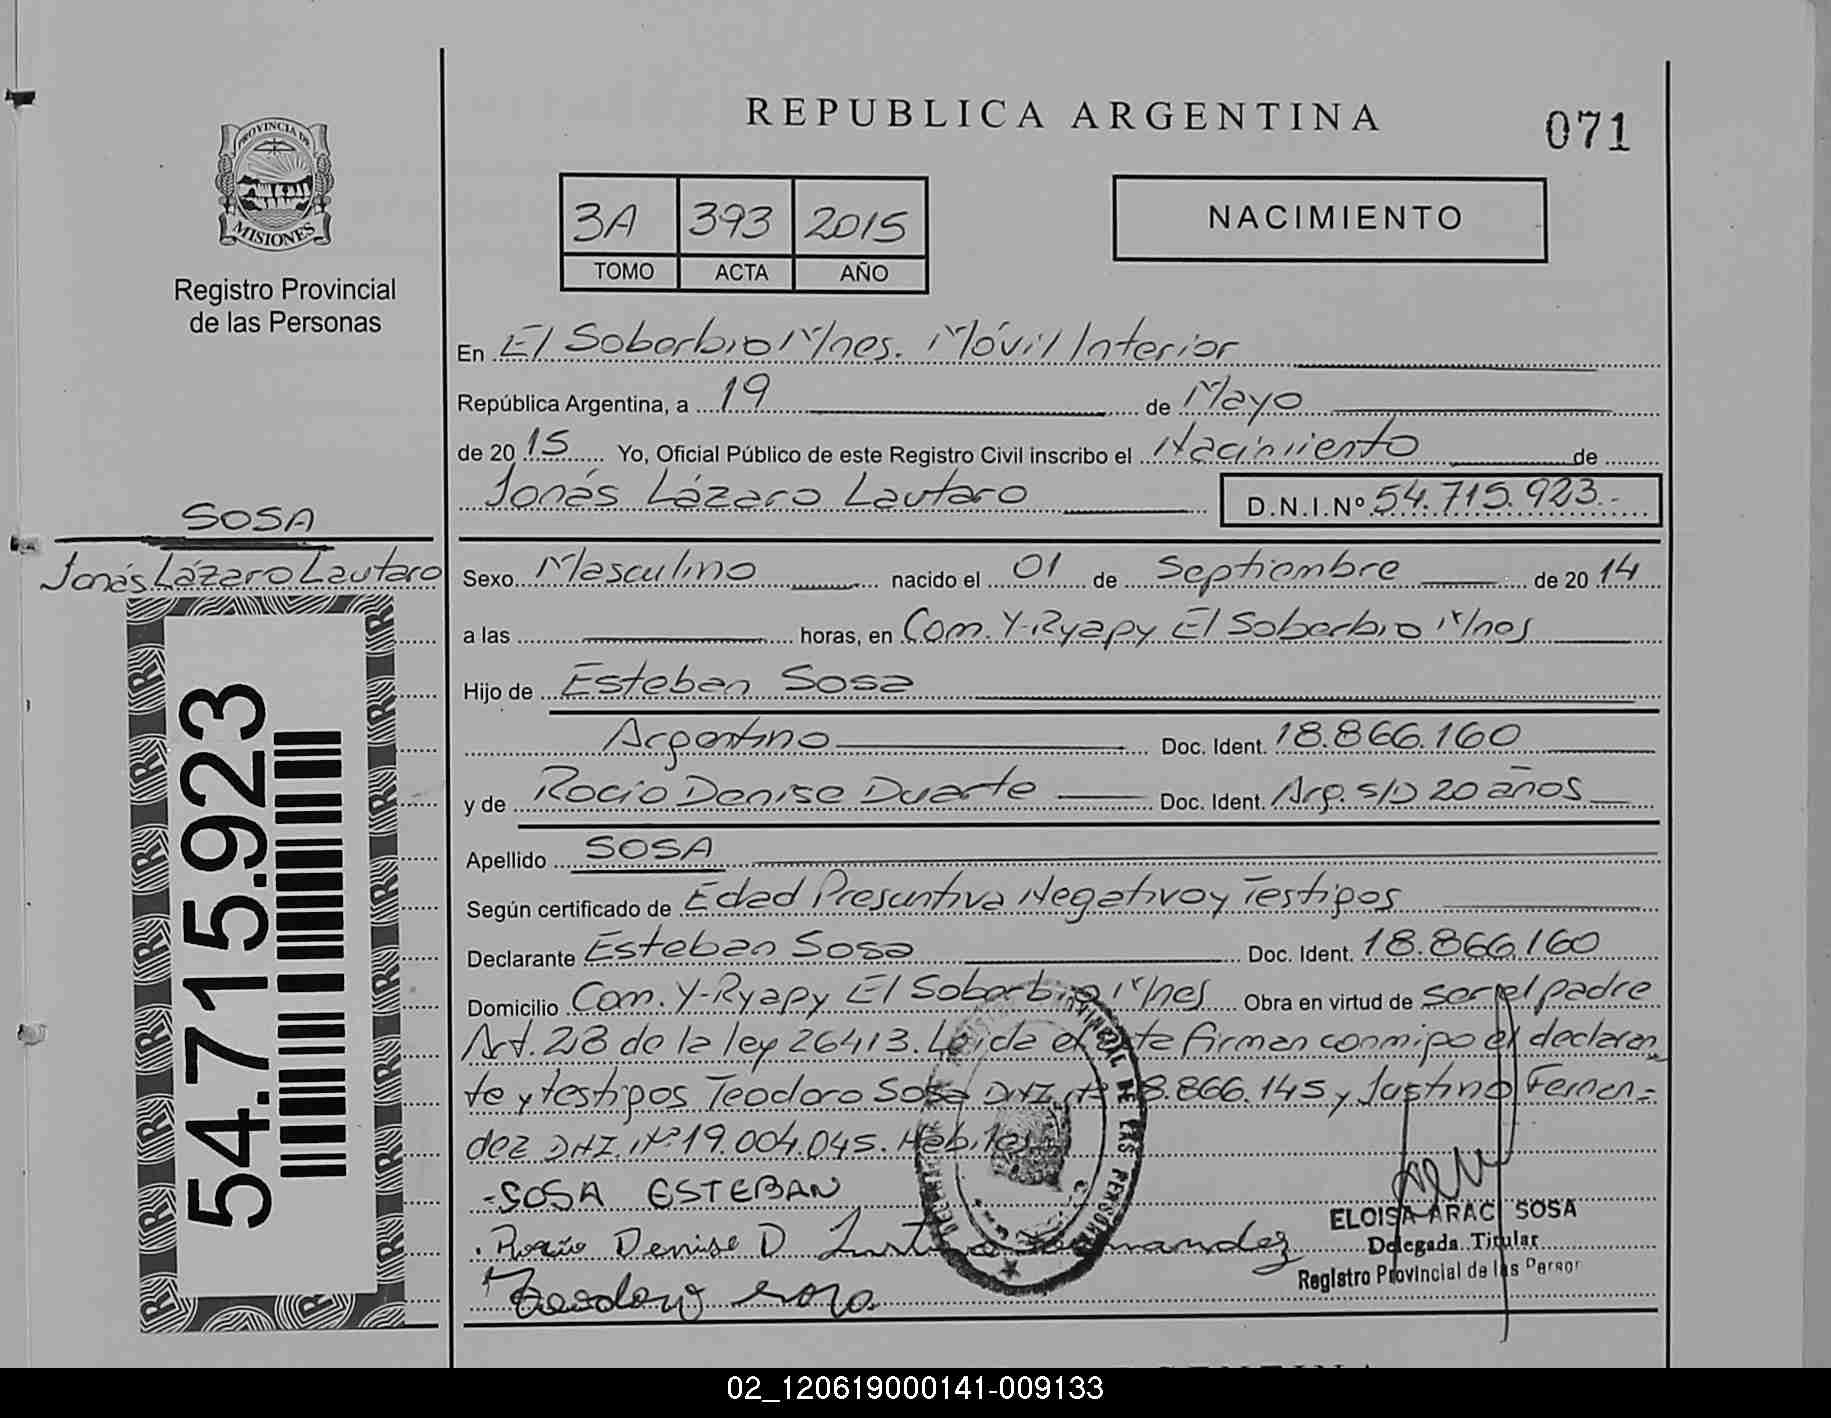 REPUBLICA ARGENTINA
071
PROVINCIA DE
MISIONES
Registro Provincial
de las Personas
3A 393 2015
TOMO ACTA AÑO
NACIMIENTO
En El Soberbio Mnes. Móvil Interior
República Argentina, a 19 de Mayo
de 2015 Yo, Oficial Público de este Registro Civil inscribo el Nacimiento de
Jonás Lázaro Lautaro D.N.I.Nº 54.715.923.-
SOSA
Jonás Lázaro Lautaro
54.715.923
Sexo Masculino nacido el 01 de Septiembre de 2014
a las horas, en Com. Y-Ryapy El Soberbio Mnes
Hijo de Esteban Sosa
Argentino Doc. Ident. 18.866.160
y de Rocio Denise Duarte Doc. Ident. Arg. S/D 20 años
Apellido SOSA
Según certificado de Edad Presuntiva Negativo y Testigos
Declarante Esteban Sosa Doc. Ident. 18.866.160
Domicilio Com. Y-Ryapy El Soberbio Mnes Obra en virtud de ser el padre
Art. 28 de la ley 26413. Leida el acta firman conmigo el declaran
te y testigos Teodoro Sosa DNI. Nº 18.866.145 y Justino Fernan=
dez DNI. Nº 19.004.045. Hábiles
-SOSA ESTEBAN
Rocío Denise D Justino Fernandez
Teodoro sosa
ELOISA ARACI SOSA
Delegada Titular
Registro Provincial de las Person
02_120619000141-009133